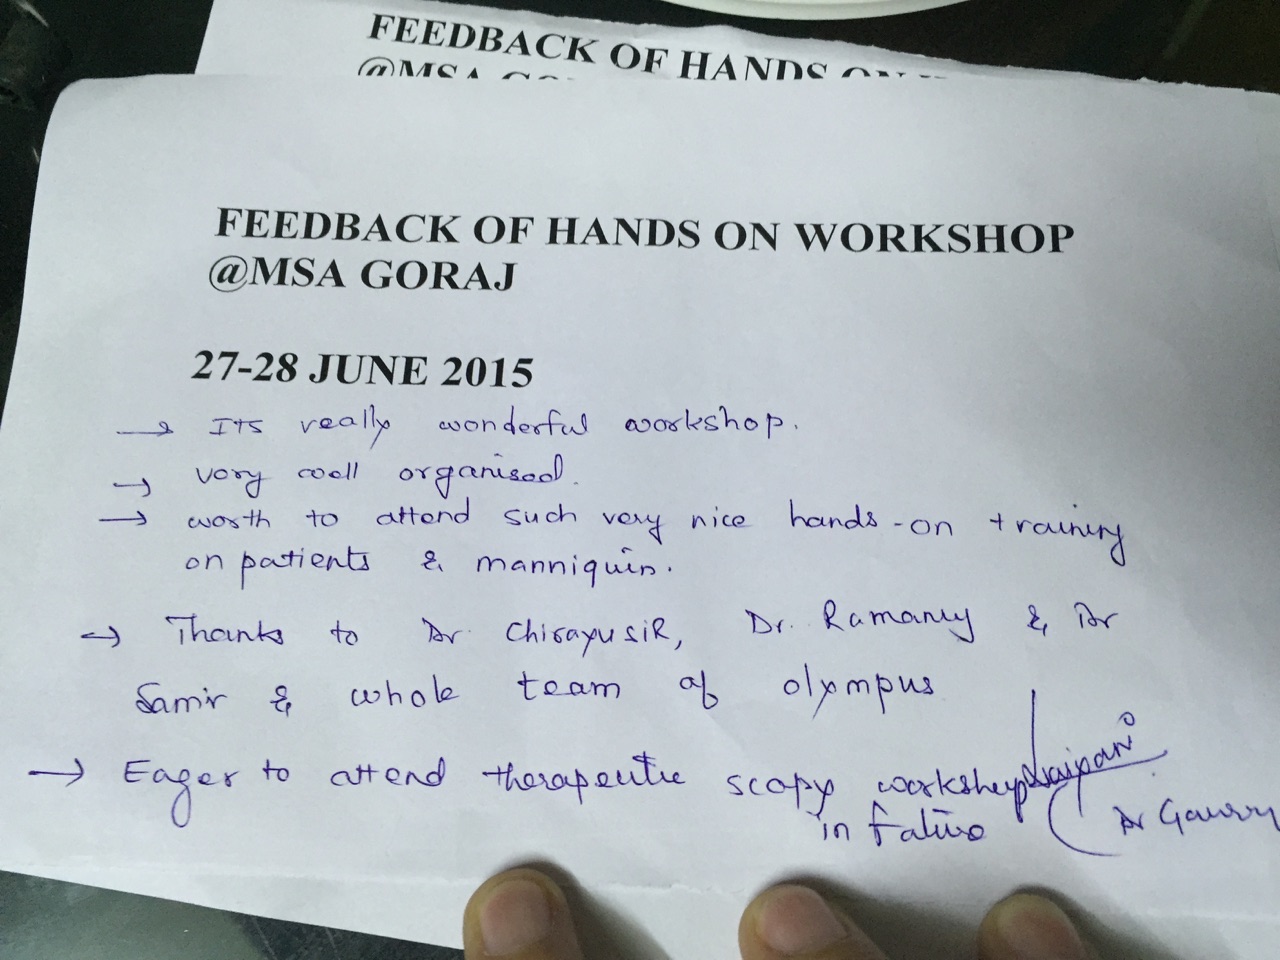 FEEDBACK OF HANDS ON
@MSA GO
FEEDBACK OF HANDS ON WORKSHOP
@MSA GORAJ
27-28 JUNE 2015
→ Its really wonderful workshop.
→ very well organised.
→ worth to attend such very nice hands-on training
on patients & manniquin.
→ Thanks to Dr. Chirayu siR, Dr. Ramany & Dr
Samir & whole team of olympus
→ Eager to attend therapeutic scopy workshop
in future
Dr Gaurav